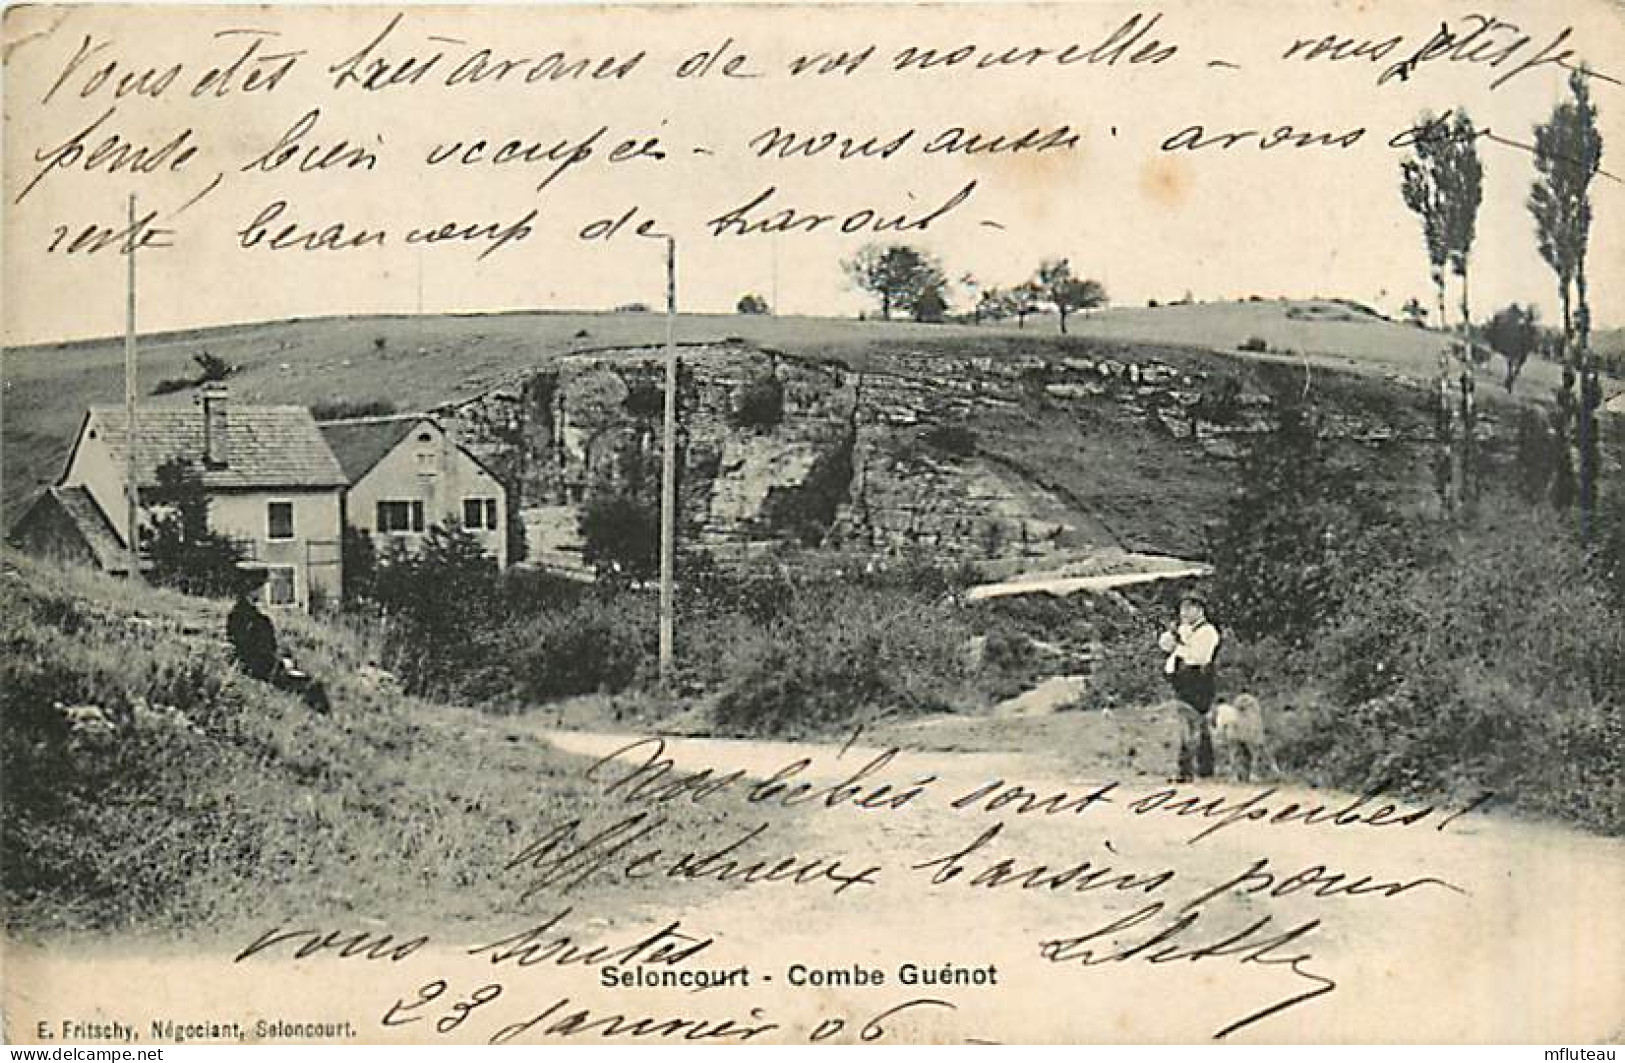 Vous êtes très avares de vos nouvelles - vous êtes je
pense, bien occupées - nous aussi avons du
reste beaucoup de travail -
Nos bébés sont superbes!
Affectueux baisers pour
vous toutes Lilette
Seloncourt - Combe Guénot
23 Janvier 06
E. Fritschy, Négociant, Seloncourt.
https://www.delcampe.net
mfluteau